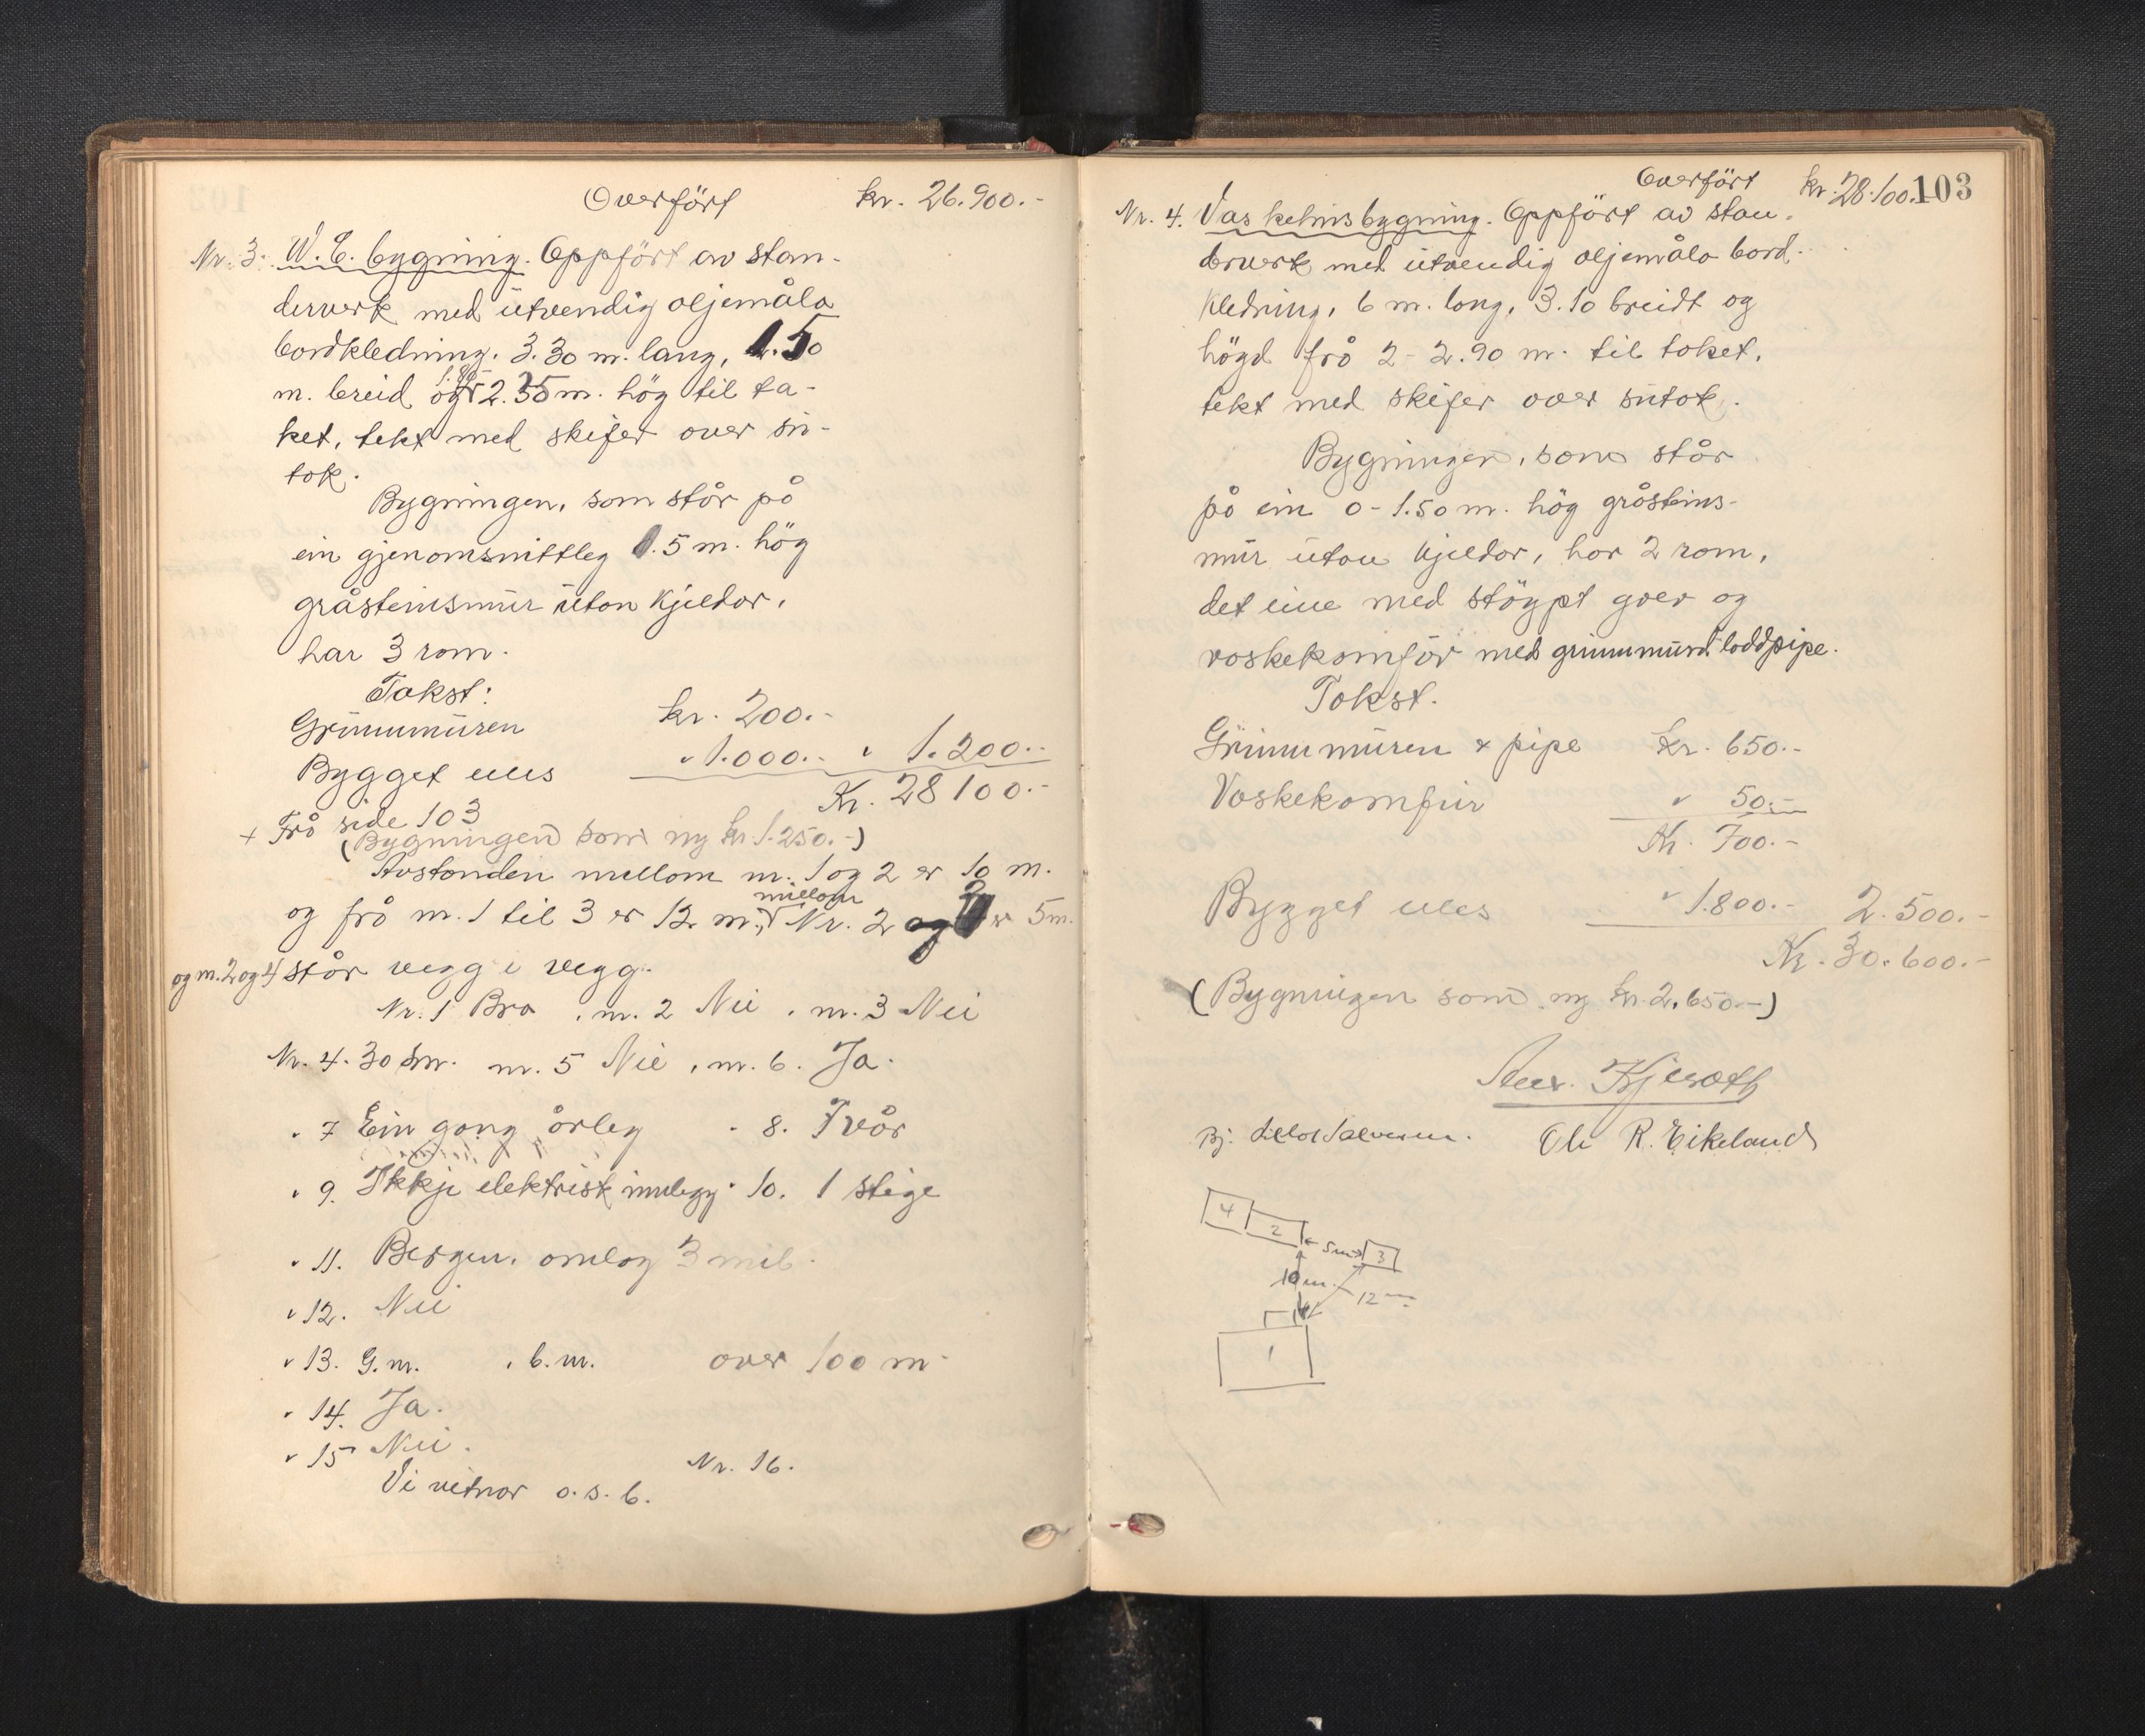 Overført kr. 26.900.-
Nr. 3. W.C. bygning. Oppført av stan-
derverk med utvendig oljemåla
bordkledning. 3.30 m. lang, 1.50
m. breid og 2.35 m. høg til ta-
ket, tekt med skifer over su-
tak.
Bygningen, som står på
ein gjenomsnittleg 1.5 m. høg
gråsteinsmur utan kjeldar,
har 3 rom.
Takst:
Grunnmuren kr. 200.-
Bygget elles " 1.000.- " 1.200.-
Kr. 28100.-
+ Frå side 103
(Bygningen som ny kr. 1.250.-)
Avstanden mellom nr. 1 og 2 er 10 m.
og frå nr. 1 til 3 er 12 m., mellom Nr. 2 og 3 er 5 m.
og nr. 2 og 4 står vegg i vegg.
Nr. 1 Bra, nr. 2 Nei, nr. 3 Nei
Nr. 4. 30 km. nr. 5 Nei, nr. 6. Ja.
" 7 Ein gong årleg " 8. Tvår
" 9. Ikkje elektrisk innlegg. 10. 1 stige
" 11. Bergen, omlag 3 mil.
" 12. Nei
" 13. G.m. , b.m. over 100 m.
" 14. Ja.
" 15 Nei. Nr. 16.
Vi vitnar o.s.b.
Overført kr. 28.100.-
103
Nr. 4. Vaskehusbygning. Oppført av stan-
derverk med utvendig oljemåla bord-
kledning, 6 m. lang, 3.10 breidt og
høgd frå 2 - 2.90 m. til taket,
tekt med skifer over sutak.
Bygningen, som står
på ein 0 - 1.50 m. høg gråsteins-
mur utan kjeldar, har 2 rom,
det eine med støypt golv og
vaskekomfyr med grunnmurt loddpipe.
Takst.
Grunnmuren & pipe kr. 650.-
Vaskekomfur " 50.-
Kr. 700.-
Bygget elles " 1.800.- 2.500.-
Kr. 30.600.-
(Bygningen som ny kr. 2.650.-)
Bj. Ole R. Eikeland
4
2
5m
3
10 m.
12
1